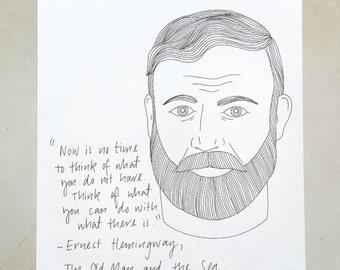 "Now is no time
to think of what
you do not have.
Think of what
you can do with
what there is."
- Ernest Hemingway,
The Old Man and the Sea